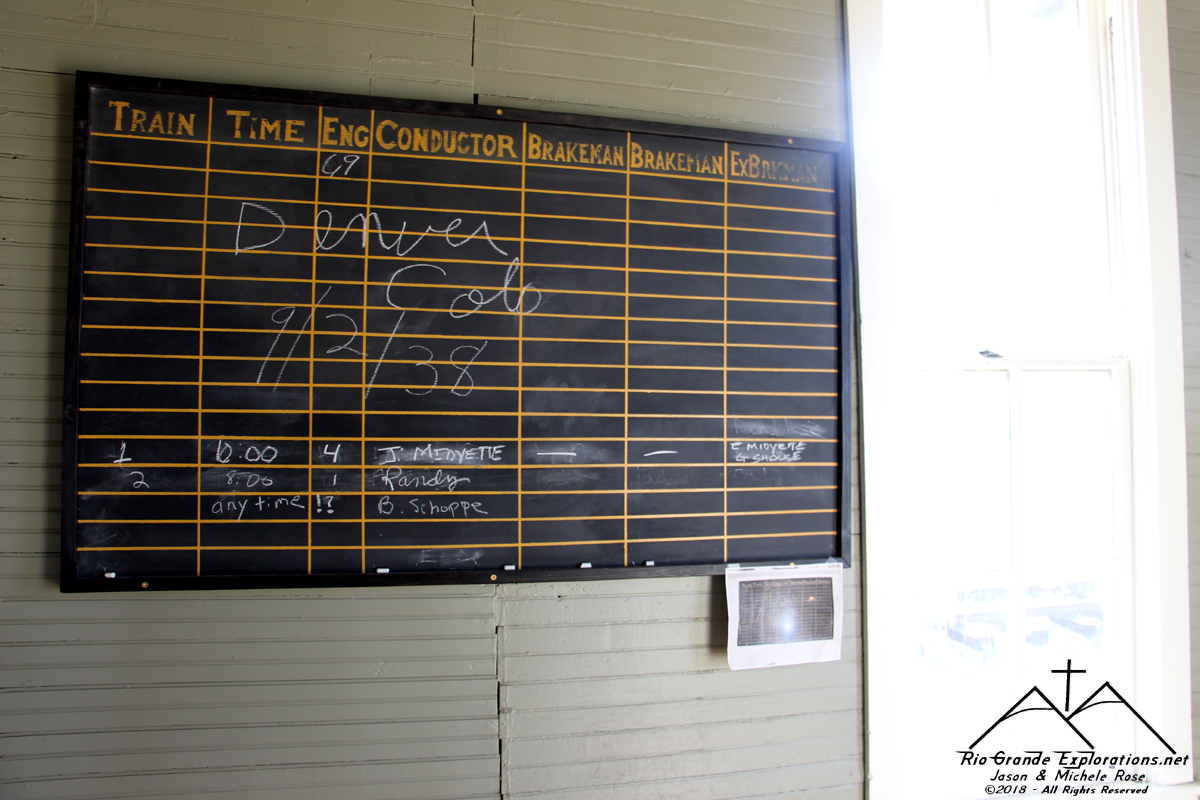 TRAIN TIME ENG CONDUCTOR BRAKEMAN BRAKEMAN EXBRKMAN
69
Denver
Colo
9/2/38
1 10:00 4 J. MIDYETTE — — E MIDYETTE
G SHOUSE
2 8:00 1 Randy
any time !? B. Schoppe
Rio Grande Explorations.net
Jason & Michele Rose
©2018 - All Rights Reserved